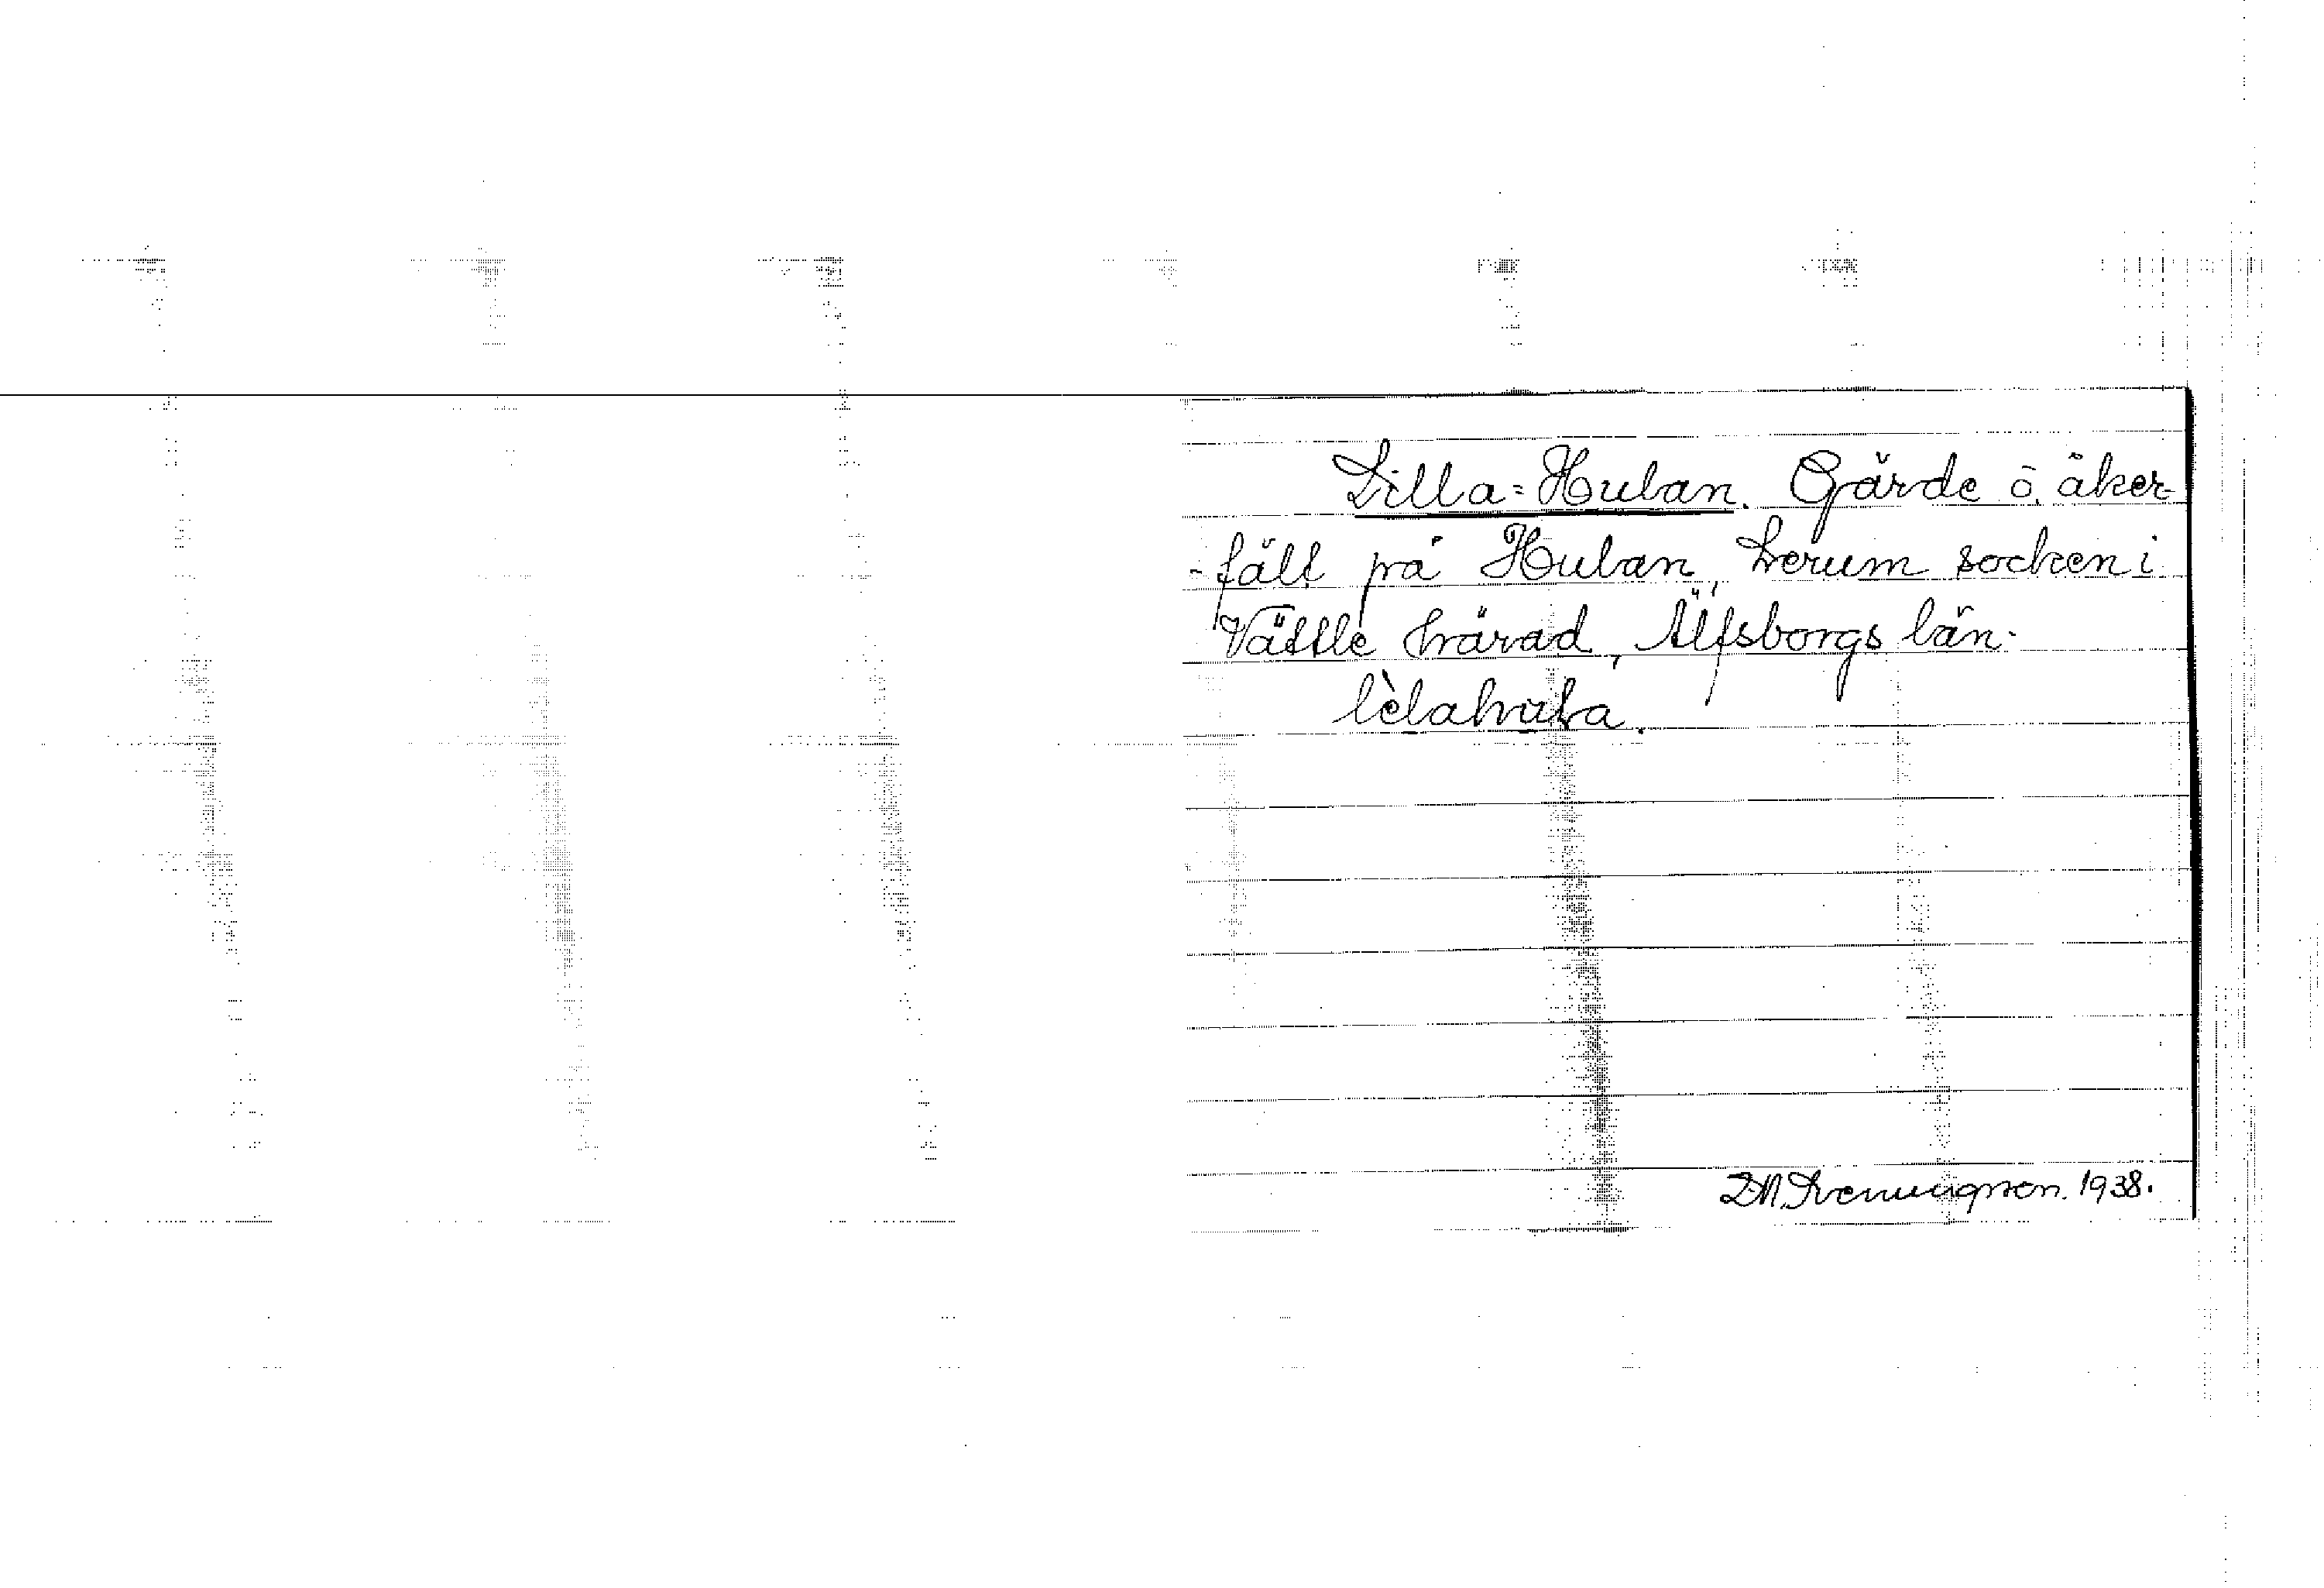 Lilla=Hulan. Gärde o. åker-
-fält på Hulan, Lerum socken i
Vättle härad, Älfsborgs län.
lèlahula.
1938.